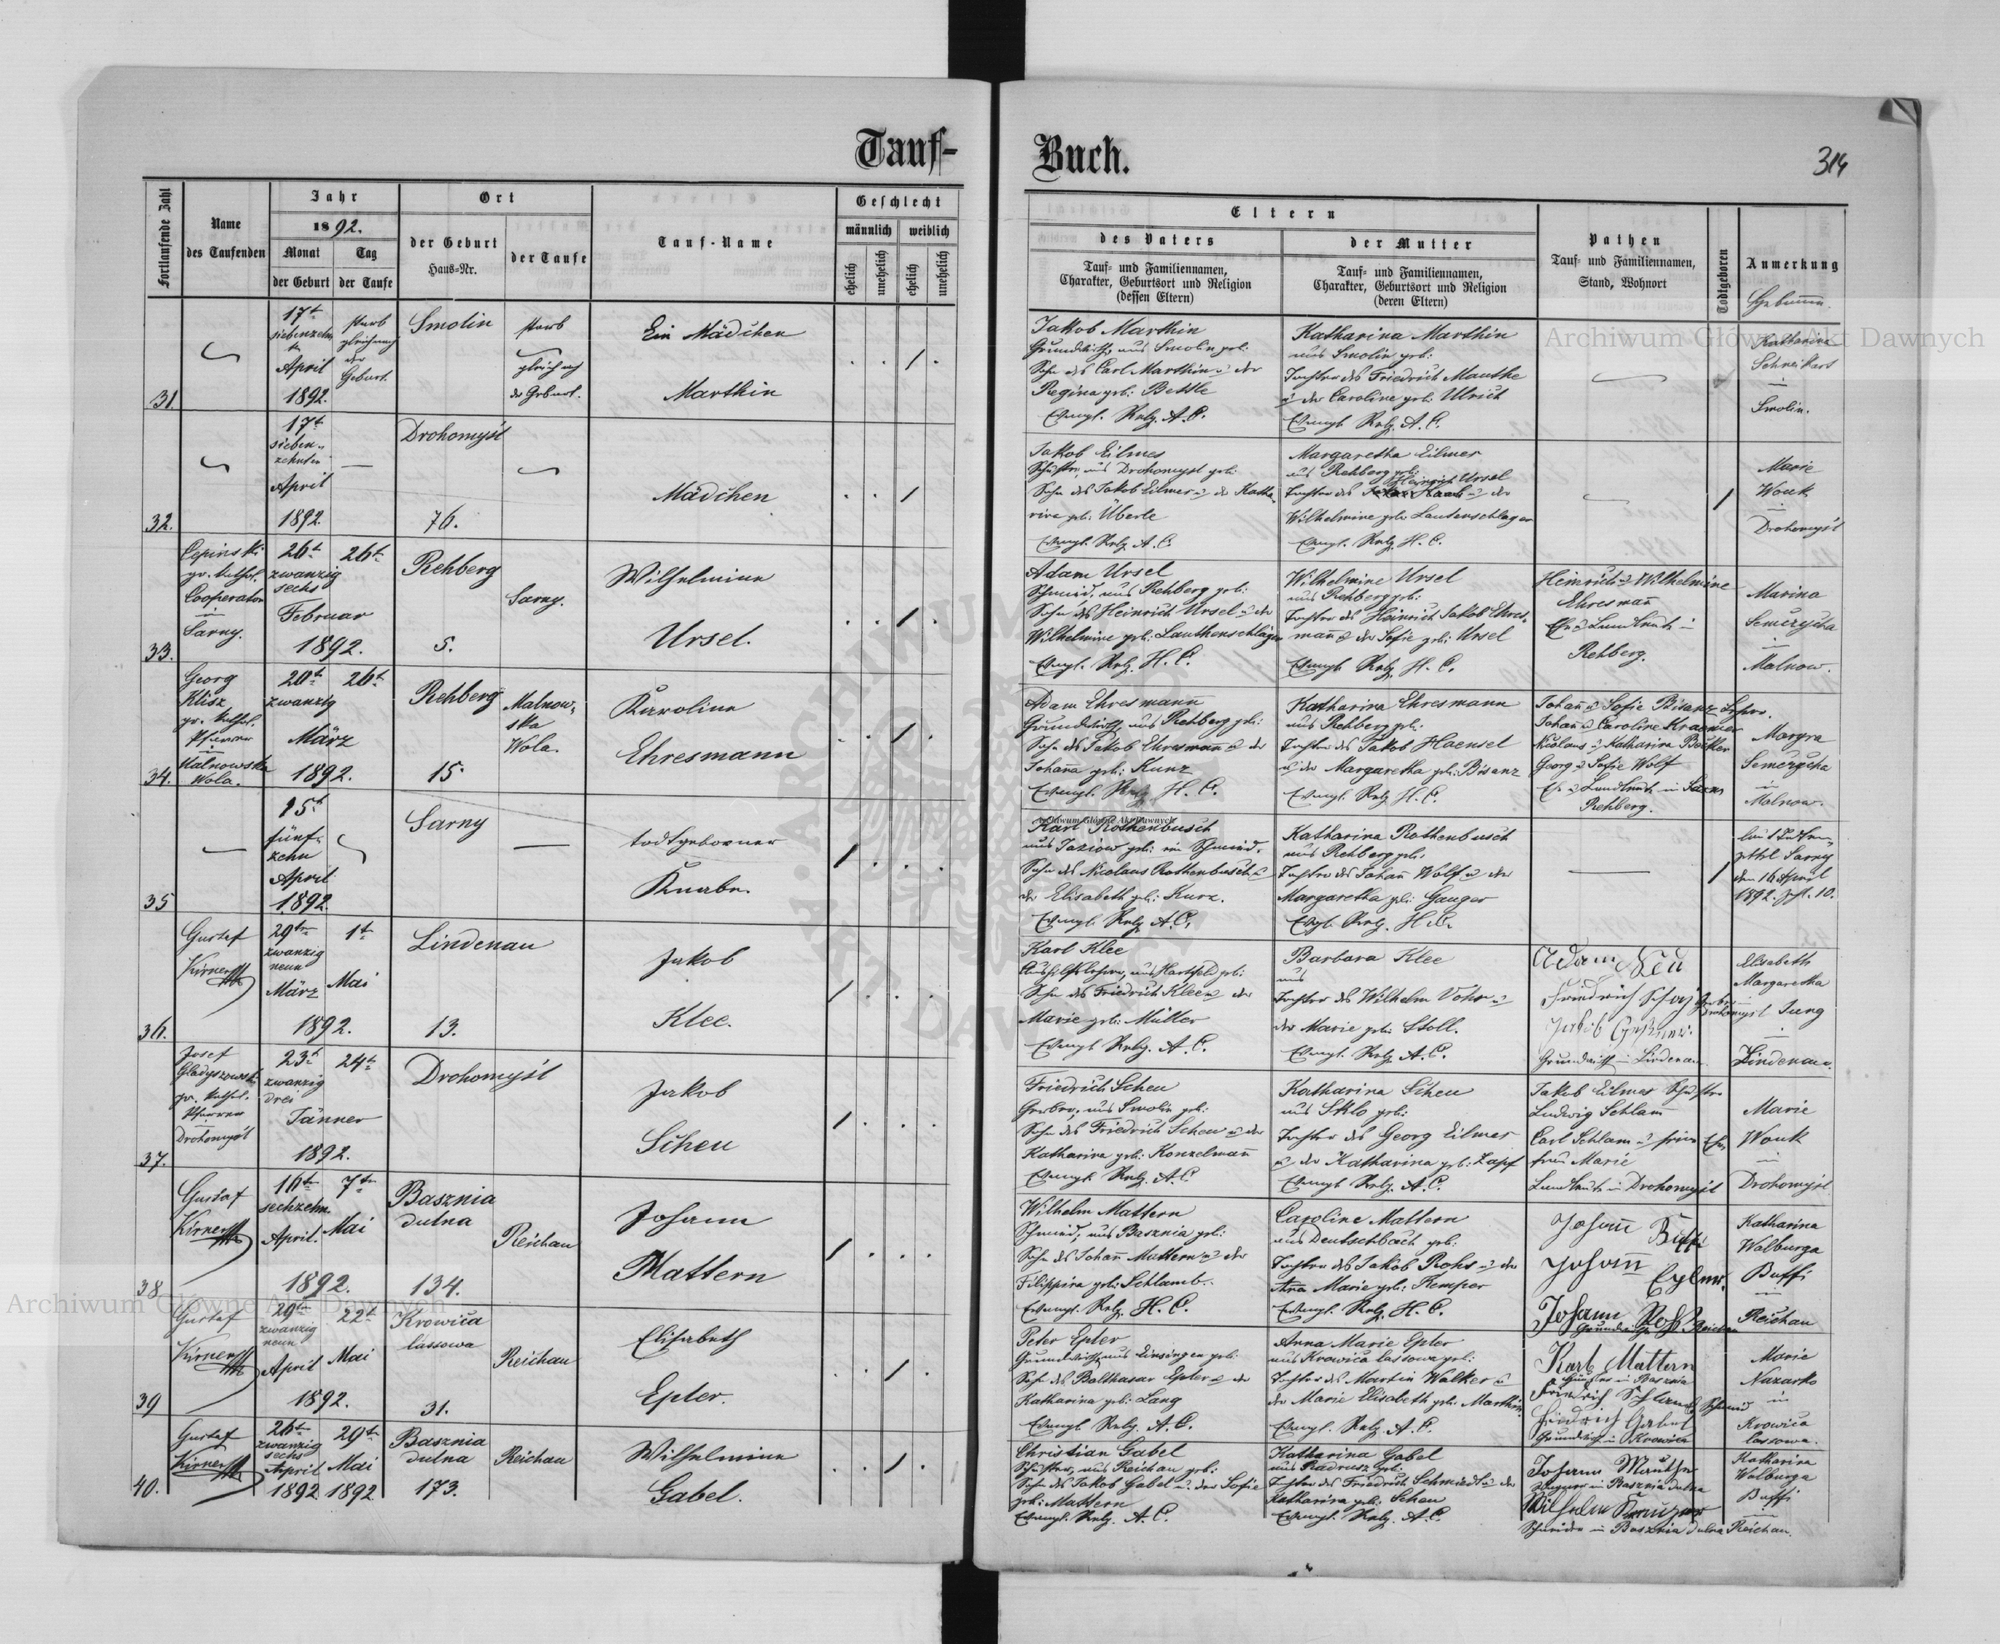 Tauf-
Buch.
314
Fortlaufende Zahl
Name
des Taufenden
Jahr
1892.
Monat
Tag
der Geburt
der Taufe
Ort
der Geburt
Haus-Nr.
der Taufe
Tauf-Name
Geschlecht
männlich
weiblich
ehelich
unehelich
ehelich
unehelich
Eltern
des Vaters
Tauf- und Familiennamen,
Charakter, Geburtsort und Religion
(dessen Eltern)
der Mutter
Tauf- und Familiennamen,
Charakter, Geburtsort und Religion
(deren Eltern)
Pathen
Tauf- und Familiennamen,
Stand, Wohnort
Todtgeboren
Anmerkung
31.
17t
April
1892.
starb
gleich nach
der
Geburt.
Smolin
starb
gleich nach
der Geburt.
Ein Mädchen
Marthin
Jakob Marthin
Grundwirth, aus Smolin geb:
Sohn des Carl Marthin u der
Regina geb: Bettle
Evangl. Relg. A.C.
Katharina Marthin
aus Smolin geb:
Tochter des Friedrich Mauthe
u der Caroline geb: Ulrich
Evangl. Relg. A.C.
Katharina
Schweikart
in
Smolin.
32.
17t
sieben-
zehnten
April
1892
Drohomyśl
76.
Mädchen
Jakob Eilmes
Schuster, aus Drohomyśl geb:
Sohn des Jakob Eilmes u der Katha-
rina geb: Überle
Evangl. Relg. A.C.
Margaretha Eilmes
aus Rehberg geb:
Heinrich Ursel
Tochter des u der
Wilhelmine geb: Lautenschlager
Evangl. Relg. H.C.
Marie
Wouk
in
Drohomyśl
33.
Cepinski
gr. kathol.
Cooperator
in
Sarny.
26t
zwanzig
sechs
Februar
1892.
26t
Rehberg
5.
Sarny.
Wilhelmine
Ursel.
Adam Ursel
Schmied, aus Rehberg geb:
Sohn des Heinrich Ursel u der
Wilhelmine geb: Lauthenschläger
Evangl. Relg. H.C.
Wilhelmine Ursel
aus Rehberg geb:
Tochter des Heinrich Jakob Ehres-
mañ u der Sofie geb: Ursel
Evangl. Relg. H.C.
Heinrich u Wilhelmine
Ehresmañ
Ehe u Landleute in
Rehberg.
Marina
Semczycha
in
Malnow.
34.
Georg
Klisz
gr. kathol.
Pfarrer
in
Malnowska
Wola.
20t
zwanzig
März
1892.
26t
Rehberg
15.
Malnow-
ska
Wola.
Karoline
Ehresmann
Adam Ehresmann
Grundwirth, aus Rehberg geb:
Sohn des Jakob Ehresmann u der
Johaña geb: Kunz
Evangl. Relg. H.C.
Katharina Ehresmann
aus Rehberg geb:
Tochter des Jakob Haensel
u der Margaretha geb: Bisanz
Evangl. Relg. H.C.
Johañ u Sofie Bisanz
Johañ u Caroline Kraemer
Nicolaus u Katharina Becker
Georg u Sofie Wolf
Ehe u Landleute in
Rehberg.
Maryna
Semczycha
in
Malnow.
35
15t
fünf-
zehn
April
1892.
Sarny
todtgeborner
Knabe.
Karl Rothenbusch
aus Jaziow geb: ein Schmied.
Sohn des Nicolaus Rothenbusch u
der Elisabeth geb: Kurz.
Evangl. Relg. A.C.
Katharina Rothenbusch
aus Rehberg geb:
Tochter des Johañ Wolf u der
Margaretha geb: Gauger
Evgl. Relg. H.C.
den 16 April
1892. Zhl. 10.
36.
Gustaf
Kirner
29ten
zwanzig
neun
März
1892.
1t
Mai
Lindenau
13.
Jakob
Klee.
Karl Klee
Aushilfslehrer, aus Hartfeld geb:
Sohn des Friedrich Klee u der
Marie geb: Müller
Evangl. Relg. A.C.
Barbara Klee
aus
Tochter des Wilhelm Vohr u
der Marie geb: Stoll.
Evangl. Relg. A.C.
Adam Neu
Friedrich
Jakob
Grundwirth in Lindenau
Elisabeth
Margaretha
Jung
in
Lindenau.
37.
Josef
Gladyszowski
gr. kathol.
Pfarrer
in
Drohomyśl
23t
zwanzig
drei
Jänner
1892.
24t
Drohomyśl
Jakob
Scheu
Friedrich Scheu
Gerber, aus Smolin geb:
Sohn des Friedrich Scheu u der
Katharina geb: Konzelmañ
Evangl. Relg. A.C.
Katharina Scheu
aus Skło geb:
Tochter des Georg Eilmes
u der Katharina geb: Zapf
Evangl. Relg. A.C.
Jakob Eilmes Schuster
Ludwig Schlam
Carl Schlam u seine Ehe-
frau Marie
Landleute in Drohomyśl
Marie
Wouk
in
Drohomyśl
38
Gustaf
Kirner
16ten
sechzehn
April.
1892.
7ten
Mai
Basznia
dulna
134.
Reichau
Johann
Mattern
Wilhelm Mattern
Schmied, aus Basznia geb:
Sohn des Johañ Mattern u der
Filippina geb: Schlamb.
Evangl. Relg. H.C.
Caroline Mattern
aus Deutschbach geb:
Tochter des Jakob Rohs u der
Ana Marie geb: Kemper
Evangl. Relg. H.C.
Johañ Buffi
Johañ Eyler.
Johann Roß
Katharina
Walburga
Buffi
in
Reichau
39
Gustaf
Kirner
29ten
zwanzig
neun
April
1892.
22t
Mai
Krowica
lassowa
31.
Reichau
Elisabeth
Epler.
Peter Epler
Grundwirth, aus Einsingen geb:
Sohn des Balthasar Epler u der
Katharina geb: Lang
Evangl. Relg. A.C.
Anna Marie Epler
aus Krowica lassowa geb:
Tochter des Martin Walker u
der Marie Elisabeth geb: Marthin
Evangl. Relg. A.C.
Karl Mattern
Friedrich Schlamb Schmied
Friedrich Gabel
Grundwirth in Krowica
Marie
Nazarko
in
Krowica
lassowa.
40.
Gustaf
Kirner
26ten
zwanzig
sechs
April
1892
29ten
Mai
1892
Basznia
dulna
173.
Reichau
Wilhelmine
Gabel.
Christian Gabel
Schuster, aus Reichau geb:
Sohn des Jakob Gabel u. der Sofie
geb: Mattern
Evangl. Relg. A.C.
Katharina Gabel
aus Radrusz geb:
Tochter des Friedrich Schmiedt u der
Katharina geb: Schau
Evangl. Relg. A.C.
Johann Mauthe
in Basznia dulna
Wilhelm
Schneider in Basznia dulna
Katharina
Walburga
Buffi
in
Reichau.
Archiwum Główne Akt Dawnych
Archiwum Główne Akt Dawnych
Archiwum Główne Akt Dawnych